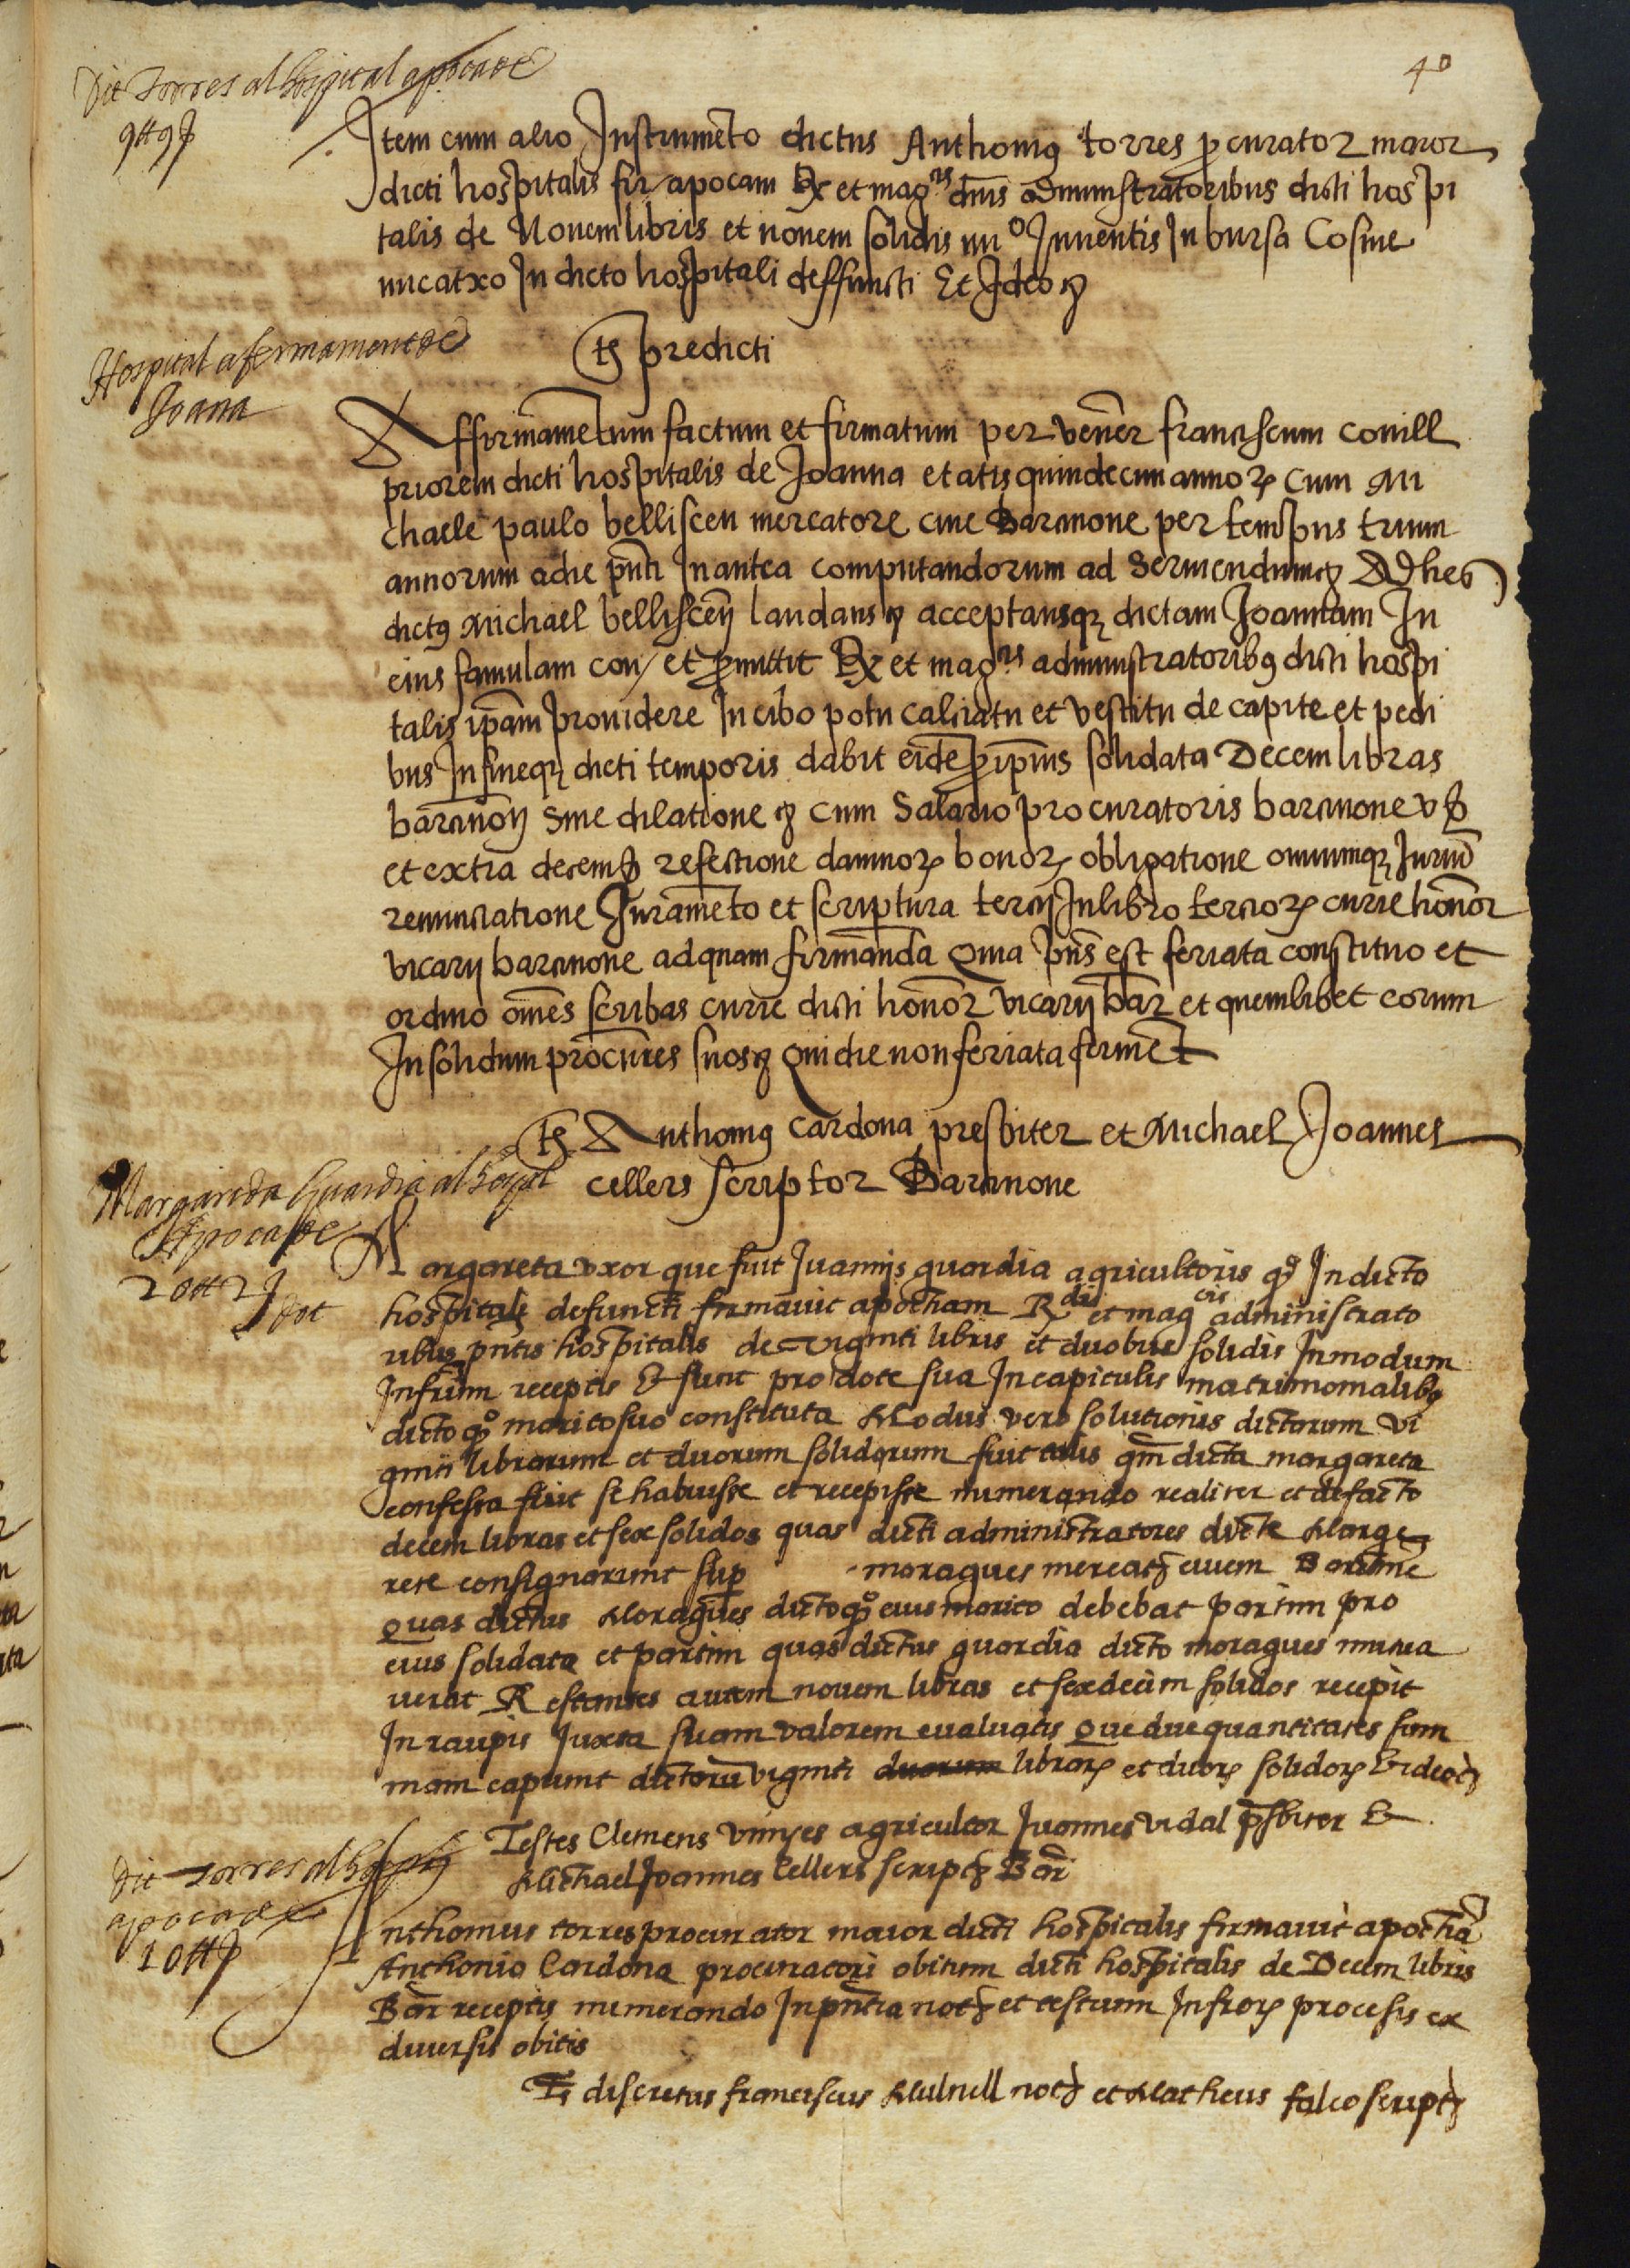 40
Dit Torres al hospital apoca de
9 ℔ 9 ẞ
Item cum alio Instrumēto dictus Anthoniꝰ torres ꝓcurator maior
dicti hospitalis fir/ apocam Rx et mag^ris dnīs administratoribus dicti hospi
talis de Novem libris et novem solidis nu^o Inventis In bursa Cosme
nicatxo In dicto hospitali deffuncti Et Ideo ꝛc
ts predicti
Hospital afermament de
Joana
Affirmamētum factum et firmatum per veneᵣ franciscum conill
priorem dicti hospitalis de Joanna etatis quindecim annoꝝ cum Mi
chaele paulo belliscen mercatore cive Barcinone per tempus trium
annorum a die pñti In antea computandorum ad serviendum ꝛc Ad hec
dictꝰ Michael belliscen̄ laudans ꝛc acceptansqꝫ dictam Joannam In
eius famulam con/ et ꝓmittit Rx et mag^ris administratoribꝰ dicti hospi
talis ip̄am providere In cibo potu calciatu et vestitu de capite et pedi
bus In fineqꝫ dicti temporis dabit eidē ꝓ ip̄ius solidata Decem libras
barcinoñ sine dilatione ꝛc cum Salario procuratoris barcinone v ẞ
et extra decem ẞ refectione damnoꝝ bonoꝝ obligatione omniumqꝫ Juriū
renunciatione Juramēto et scriptura tercij In libro tercioꝝ curie honoᵣ
vicarij barcinone ad quam firmandā Quia p̄ns est feriata constituo et
ordino om̄es scribas curie dicti honoᵣ vicarij bar̄ et quemlibet eorum
In solidum procur̄es suos ꝛc qui die non feriata firmēt
ts Anthoniꝰ Cardona presbiter et Michael Joannes
cellers scriptor Barcinone
Margarida Guardia al hospᵗ
Apoca de
20 ℔ 2 ẞ
dot
Margareta uxor que fuit Juannis guardia agricultoris qº In dicto
hospitale defuncti firmavit apocham R^dis et mag^cis administrato
ribus pñtis hospitalis de viginti libris et duobus solidis In modum
Infrūm receptis Et sunt pro dote sua In capitulis matrimonialibꝰ
dicto qº marito suo constituta Modus vero solutionis dictarum vi
ginti librarum et duorum solidorum fuit talis qm̄ dicta margareta
confessa fuit se habuisse et recepisse numerando realiter et defacto
decem libras et sex solidos quas dicti administratores dicte Marga
rete consignarunt sup̄ moragues mercatꝫ civem Barcinone
quas dictus Moragues dicto qº eius marito debebat partim pro
eius solidata et partim quas dictus guardia dicto moragues mutua
verat Restantes autem novem libras et sexdecim solidos recepit
In raupis Juxta suam valorem evaluatis que due quantitates sum
mam capiunt dictorū viginti duorum libraꝝ et duoꝝ solidoꝝ Et ideo ꝛc
Testes Clemens vinyes agricultor Juannes vidal p̄sbiter Et
Michael Joannes Cellers scriptꝫ Bar̄
Dit Torres al hospᵗ
apoca de
10 ℔ ẞ
Anthonius torres procurator maior dicti hospitalis firmavit apochā
Anthonio Cardona procuratori obitum dicti hospitalis de Decem libris
Bar̄ receptis numerando In pñtia notꝫ et testium Infroꝝ procesis ex
diversis obitis
Ts discretus franciscus Mulnell notꝫ et Matheus falco scriptꝫ